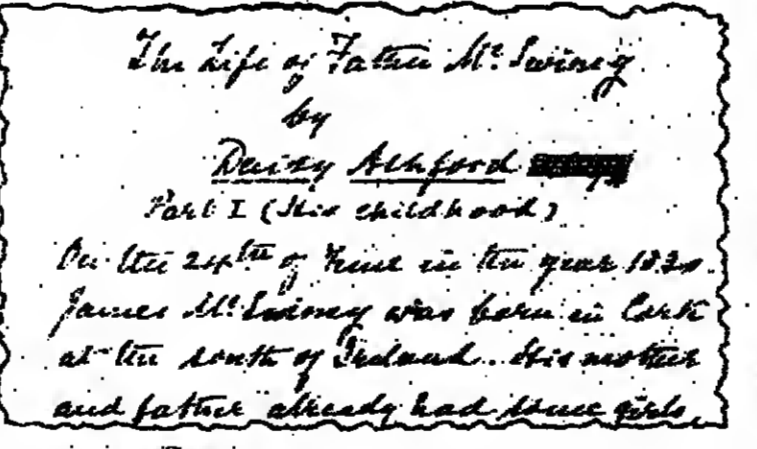 The Life of Father Mc Swiney
by
Daisy Ashford
Part I (His childhood)
On the 24th of June in the year
James McSwiney was born in Cork
at the south of Ireland. His mother
and father already had some girls